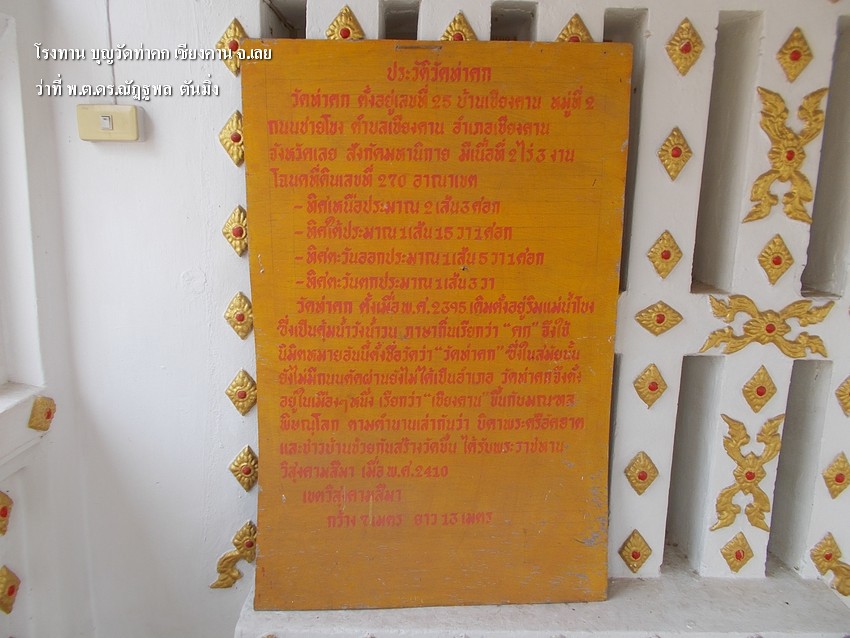 โรงทาน บุญวัดท่าคก เชียงคาน จ.เลย
ว่าที่ พ.ต.ดร.ณัฎฐพล ตันมิ่ง
ประวัติวัดท่าคก
วัดท่าคก ตั้งอยู่เลขที่ 25 บ้านเชียงคาน หมู่ที่ 2
ถนนชายโขง ตำบลเชียงคาน อำเภอเชียงคาน
จังหวัดเลย สังกัดมหานิกาย มีเนื้อที่ 2 ไร่ 3 งาน
โฉนดที่ดินเลขที่ 270 อาณาเขต
- ทิศเหนือประมาณ 2 เส้น 3 ศอก
- ทิศใต้ประมาณ 1 เส้น 15 วา 1 ศอก
- ทิศตะวันออกประมาณ 1 เส้น 5 วา 1 ศอก
- ทิศตะวันตกประมาณ 1 เส้น 3 วา
วัดท่าคก ตั้งเมื่อ พ.ศ. 2395 เดิมตั้งอยู่ริมแม่น้ำโขง
ซึ่งเป็นคุ้มน้ำวังน้ำวน ภาษาถิ่นเรียกว่า "คก" จึงใช้
นิมิตหมายอันนี้ตั้งชื่อวัดว่า "วัดท่าคก" ซึ่งในสมัยนั้น
ยังไม่มีถนนตัดผ่านยังไม่ได้เป็นอำเภอ วัดท่าคกจึงตั้ง
อยู่ในเมืองๆหนึ่ง เรียกว่า "เชียงคาน" ขึ้นกับมณฑล
พิษณุโลก ตามตำนานเล่ากันว่า บิดาพระศรีอัคฮาด
และชาวบ้านช่วยกันสร้างวัดขึ้น ได้รับพระราชทาน
วิสุงคามสีมา เมื่อ พ.ศ. 2410
เขตวิสุงคามสีมา
กว้าง 7 เมตร ยาว 13 เมตร